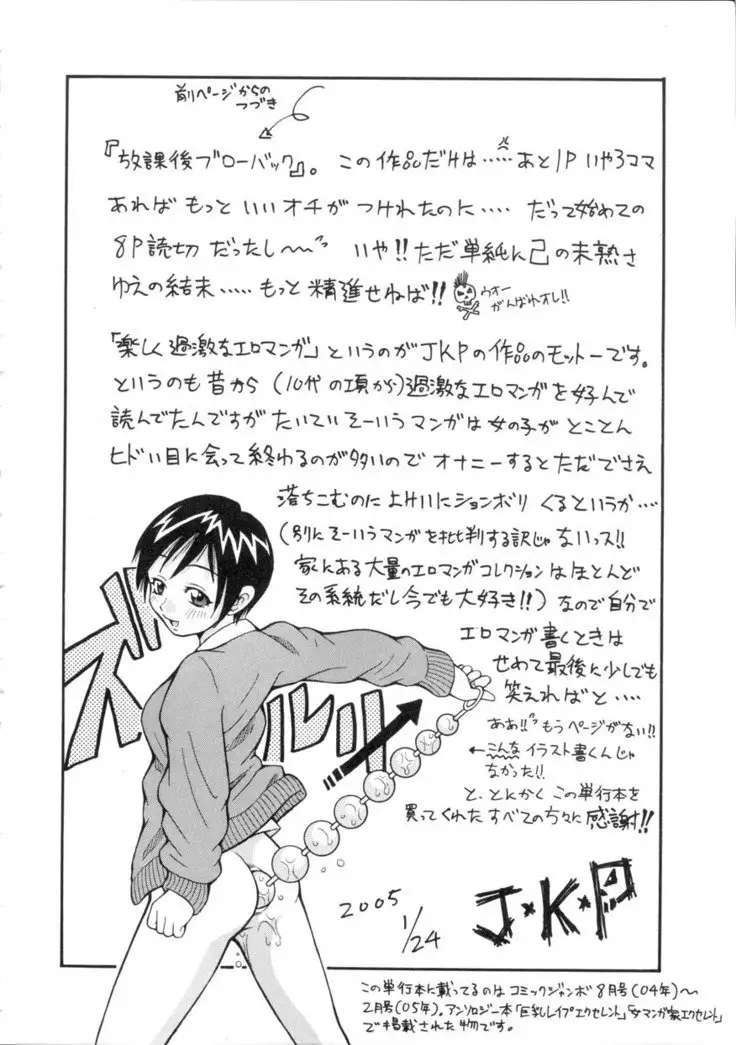 前ページからの
つづき
『放課後ブローバック』。この作品だけは……あと1Pいや3コマ
あればもっといいオチがつけれたのに……だって始めての
8P読切だったし〜〜 いや!!ただ単純に己の未熟さ
ゆえの結末……もっと精進せねば!!
ウオー
がんばれオレ!!
「楽しく過激なエロマンガ」というのがJKPの作品のモットーです。
というのも昔から(10代の頃から)過激なエロマンガを好んで
読んでたんですがたいていそーいうマンガは女の子がとことん
ヒドい目に会って終わるのが多いのでオナニーするとただでさえ
落ちこむのに上にションボリくるというか…
(別にそーいうマンガを批判する訳じゃないっス!!
家にある大量のエロマンガコレクションはほとんど
その系統だし今でも大好き!!)なので自分で
エロマンガ書くときは
せめて最後に少しでも
笑えればと….
ああ!!もうページがない!!
←こんなイラスト書くんじゃ
なかった!!
と、とにかくこの単行本を
買ってくれたすべての方々に感謝!!
ズルリ
2005
1/24
J・K・P
この単行本に載ってるのはコミックジャンボ8月号(04年)〜
2月号(05年)。アンソロジー本「巨乳レイプエクセレント」「女マンガ家エクセレント」
で掲載された物です。